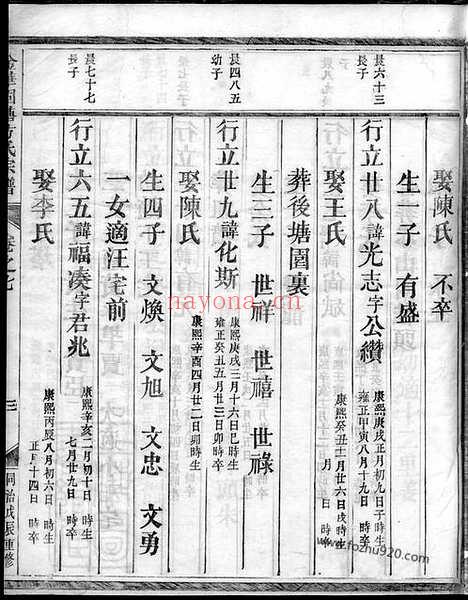 娶陳氏 不卒
生一子 有盛
晨六十三
長子
行立廿八諱光志字公纘
康熙庚戌正月初九日子時生
雍正甲寅八月十九日 時卒
娶王氏
康熙癸丑十一月廿六日戌時生
月 日 時卒
葬後塘園裏
生三子 世祥 世禧 世祿
晨四八五
幼子
行立廿九諱化斯
康熙庚戌三月十六日巳時生
雍正癸丑五月廿三日卯時卒
娶陳氏
康熙辛酉四月廿二日卯時生
生四子 文煥 文旭 文忠 文勇
一女適汪宅前
晨七十七
長子
行立六五諱福凑字君兆
康熙辛亥二月初十日 時生
七月廿九日 時卒
娶李氏
康熙丙辰八月初六日 時生
正月十四日 時卒
氏宗譜
卷之七
三
同治戊辰重修
nayona.cn
www.fozhu920.com